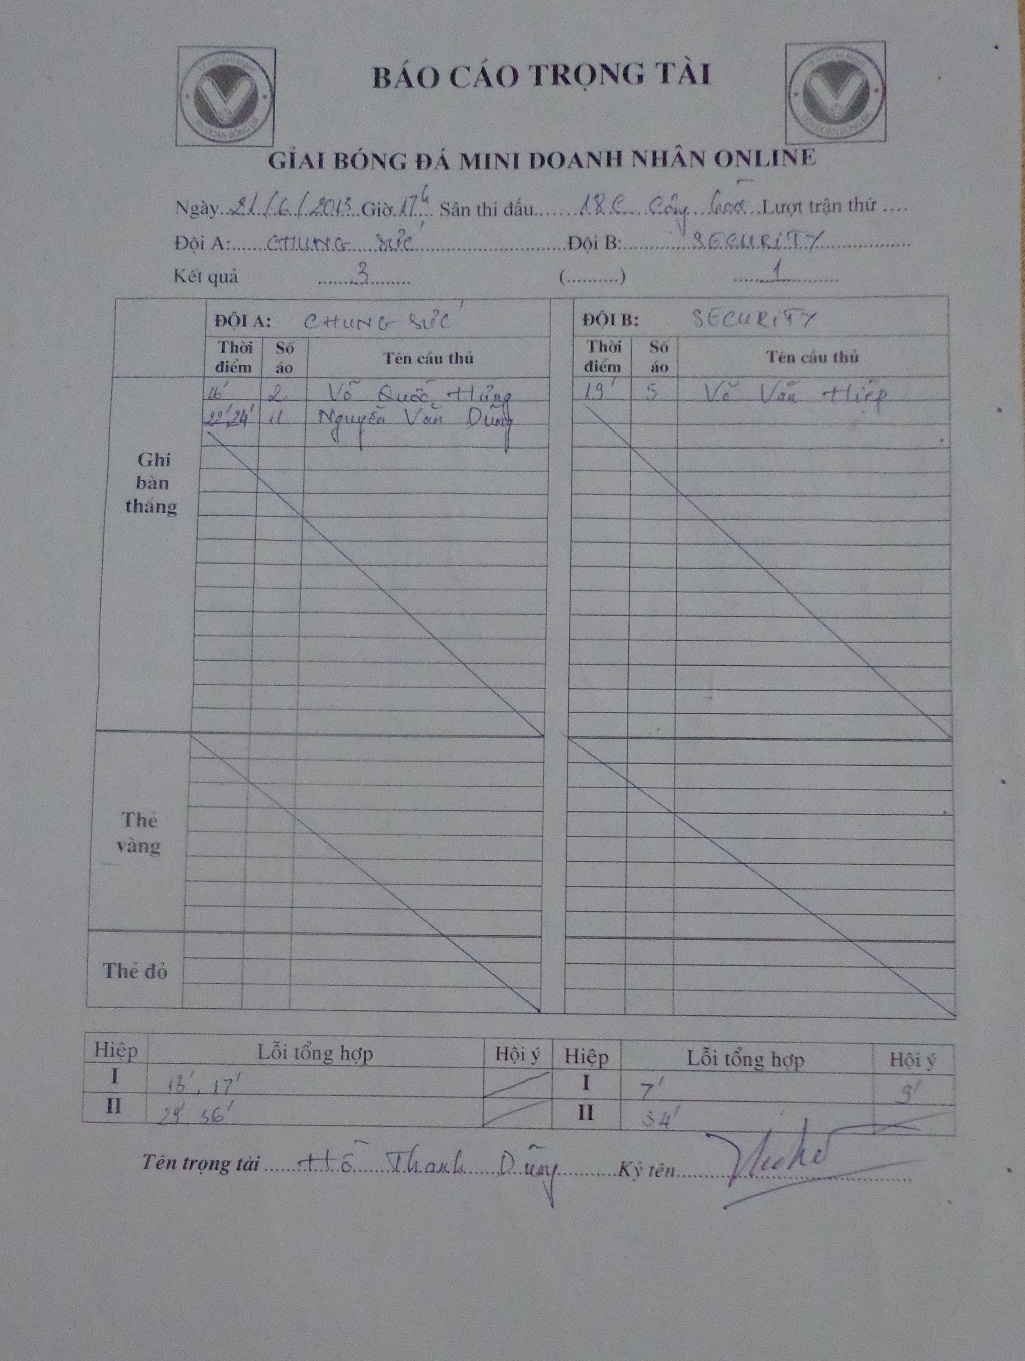 BÁO CÁO TRỌNG TÀI
GIẢI BÓNG ĐÁ MINI DOANH NHÂN ONLINE
Ngày 21/6/2013 Giờ 17h Sân thi đấu 18E Cộng hoà Lượt trận thứ ....
Đội A: CHUNG SỨC Đội B: SECURITY
Kết quả 3 (..........) 1
ĐỘI A: CHUNG SỨC ĐỘI B: SECURITY
Thời điểm Số áo Tên cầu thủ Thời điểm Số áo Tên cầu thủ
Ghi bàn thắng
16' 2 Võ Quốc Hưng 19' 5 Võ Văn Hiệp
22' 24' 11 Nguyễn Văn Dũng
Thẻ vàng
Thẻ đỏ
Hiệp Lỗi tổng hợp Hội ý Hiệp Lỗi tổng hợp Hội ý
I 13', 17' I 7' 9'
II 29' 36' II 34'
Tên trọng tài Hồ Thanh Dũng Ký tên